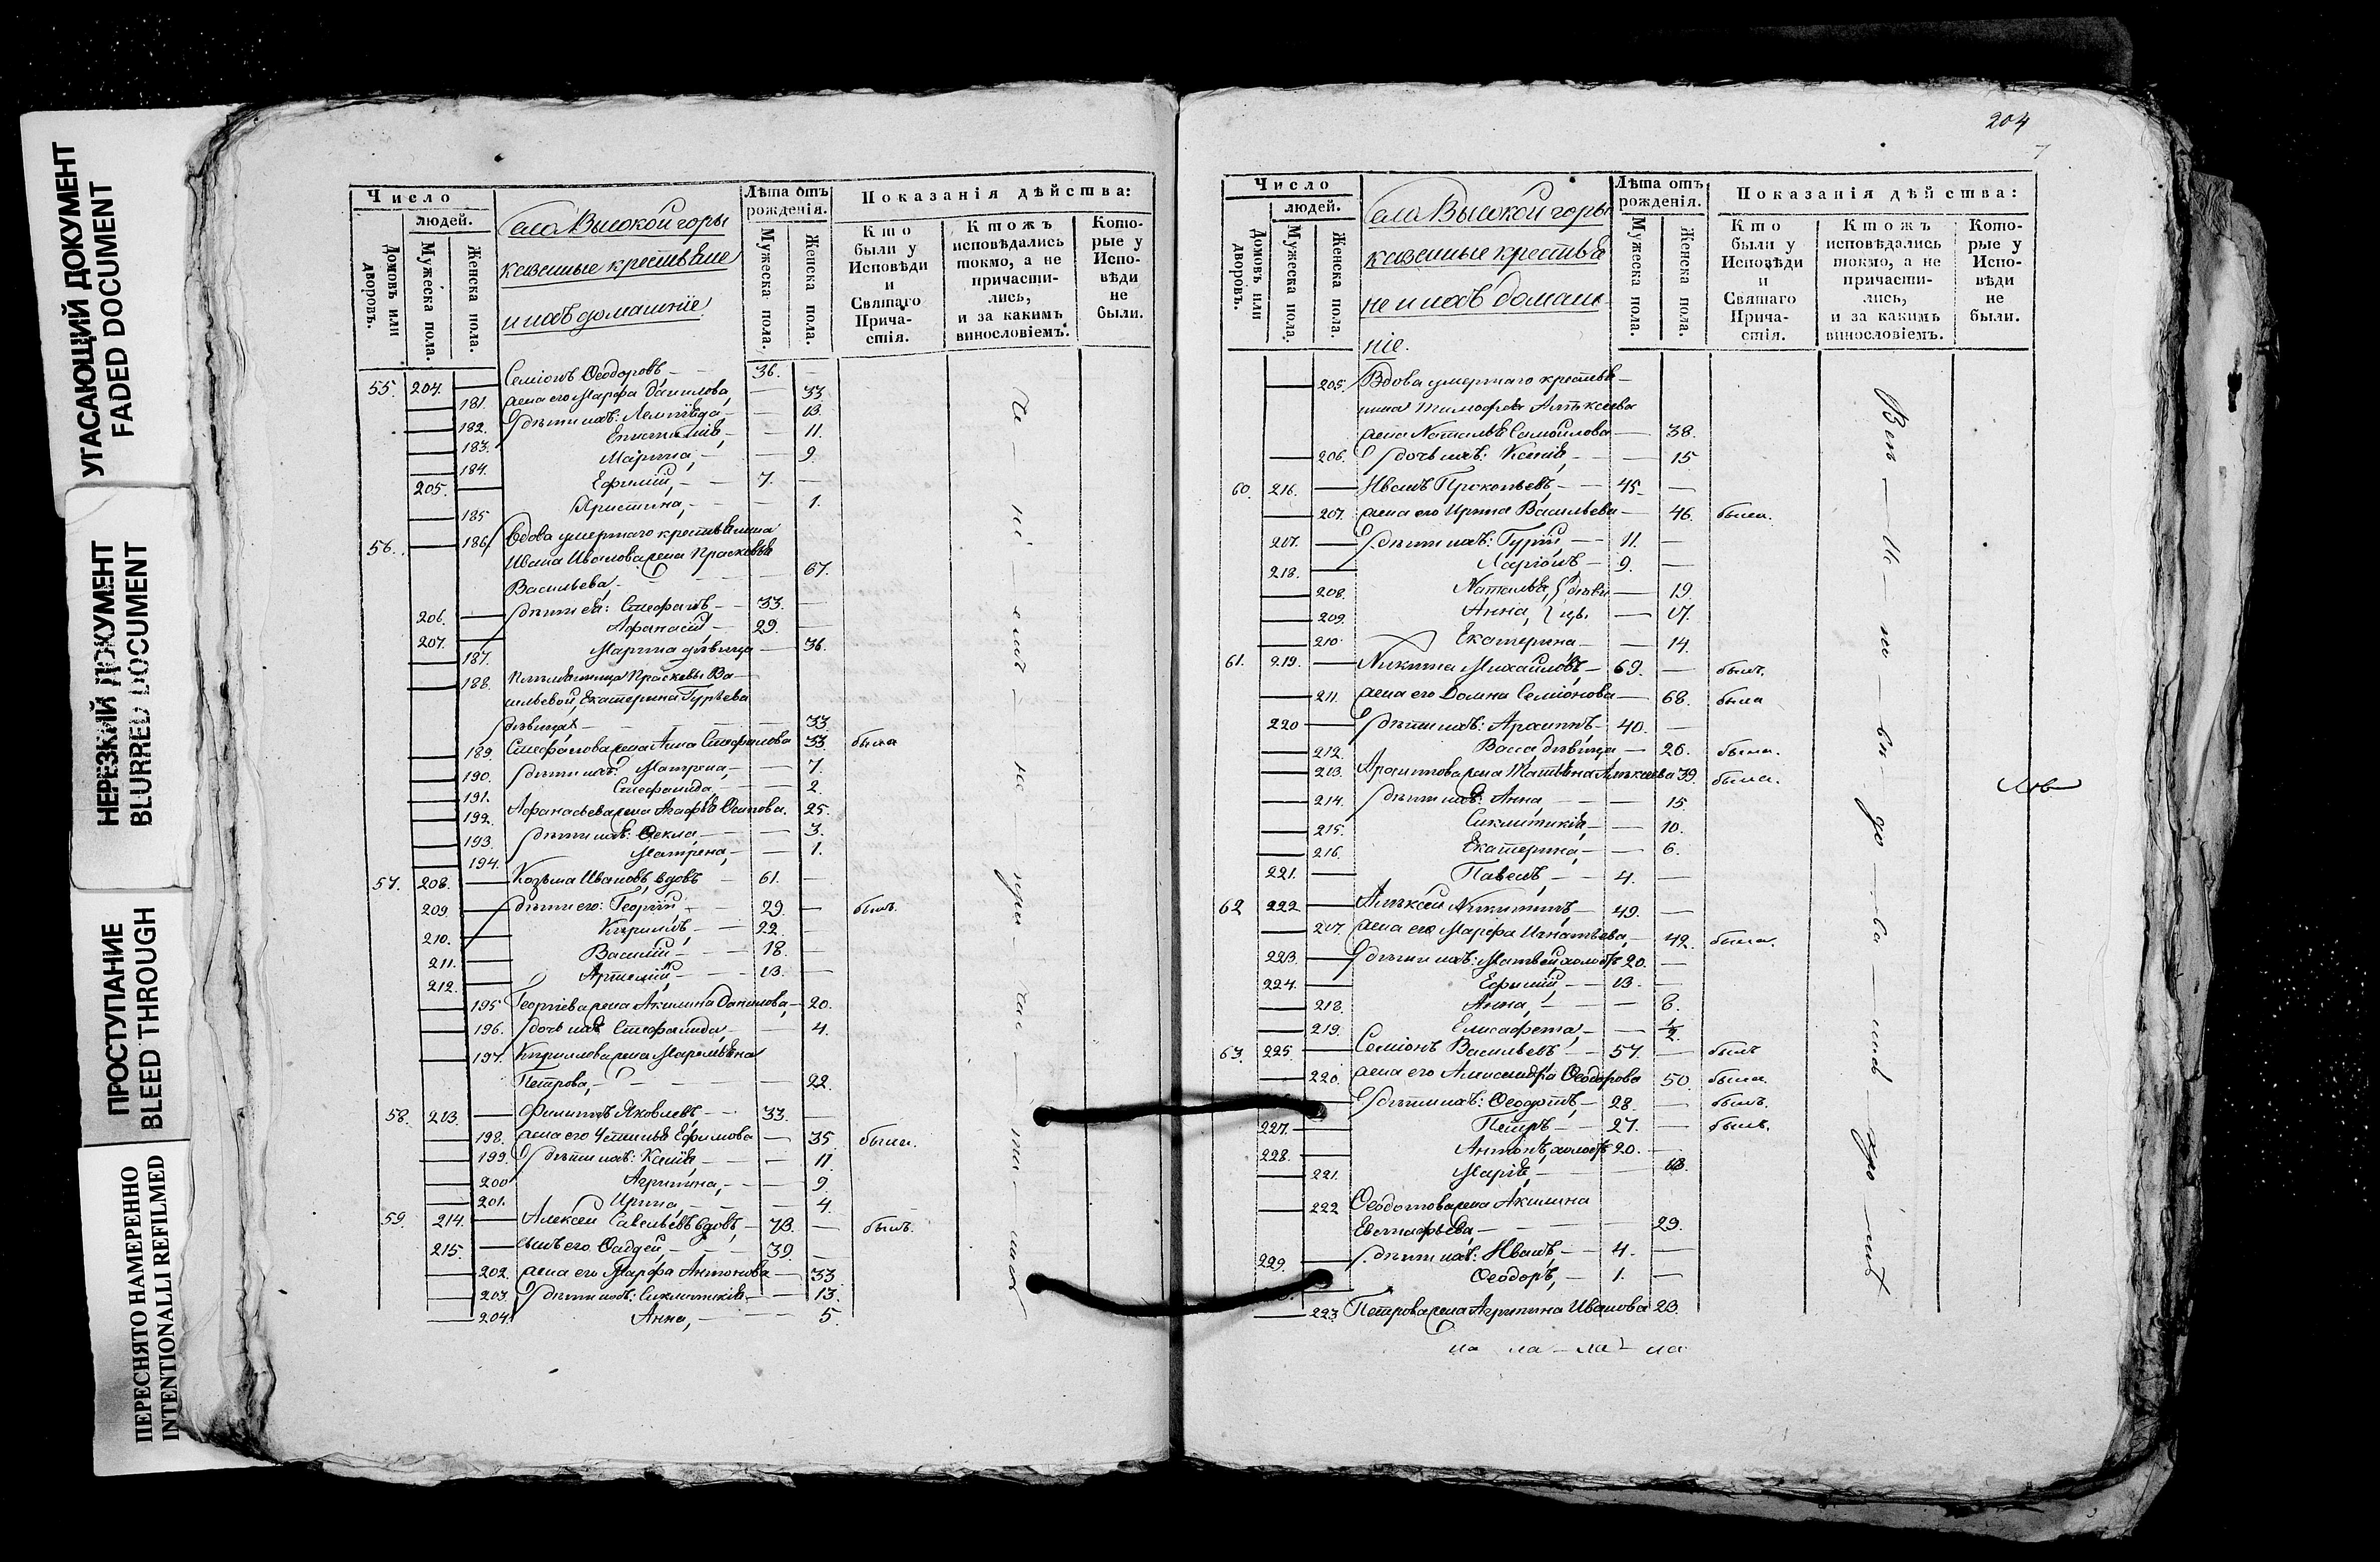 УГАСАЮЩИЙ ДОКУМЕНТ
FADED DOCUMENT
НЕРЕЗКИЙ ДОКУМЕНТ
BLURRED DOCUMENT
ПРОСТУПАНИЕ
BLEED THROUGH
ПЕРЕСНЯТО НАМЕРЕННО
INTENTIONALLI REFILMED
Число
людей.
Домовъ или дворовъ.
Мужеска пола.
Женска пола.
Села Высокой горы
казенные крестьяне
и ихъ домашніе
Лѣта отъ рожденія.
Мужеска пола.
Женска пола.
Показанія дѣйства:
Кто были у Исповѣди и Святаго Прича-стія.
Ктожъ исповѣдались токмо, а не причасти-лись, и за какимъ винословіемъ.
Кото-рые у Испо-вѣди не были.
55. 204. Семіонъ Ѳеодоровъ 36.
181. жена его Марфа Данилова 33
182. дѣти ихъ: 13.
183. 11.
184. Марина, 9.
205. Ефимій, 7.
185 Христина, 1.
56. 186 Вдова умершаго крестьянина
Ивана Иванова жена Прасковья
Васильева, 67.
206. дѣти ея: Стефанъ 33.
207. Афанасій 29.
187. Марина дѣвица 36.
188. Прасковьи Ва-
сильевой, Екатерина Гурьева
дѣвица 33
189. Стефанова жена Анна Стефанова 33 была
190. дѣти ихъ: Матрена, 7.
191. Стефанида, 2.
192. Афанасьева жена Агафья Осипова. 25.
193. дѣти ихъ: Ѳекла 3.
194. Матрена, 1.
57. 208. Козьма Ивановъ вдовъ 61.
209. дѣти его: Георгій 29. былъ.
210. Кирилъ, 22
211. Василій 18.
212. Артемій, 13.
195 Георгіева жена Акилина Данилова, 20.
196. дочь ихъ Стефанида, 4.
197. Кирилова жена Маремьяна
Петрова, 22.
58. 213. Филиппъ Яковлевъ 33.
198. жена его Устинья Ефимова 35 была.
199. дѣти ихъ: 11
200 Агрипина, 9
201. Ирина, 4.
59. 214. Алексѣй Савельевъ вдовъ, 73. былъ.
215. сынъ его Фаддей, 39.
202. жена его Марфа Антонова 33
203. дѣти ихъ: Сиклитикія 13.
204. Анна, 5.
204
Число
людей.
Домовъ или дворовъ.
Мужеска пола.
Женска пола.
Села Высокой горы
казенные крестья
не и ихъ домаш
ніе.
Лѣта отъ рожденія.
Мужеска пола.
Женска пола.
Показанія дѣйства:
Кто были у Исповѣди и Святаго Прича-стія.
Ктожъ исповѣдались токмо, а не причасти-лись, и за какимъ винословіемъ.
Кото-рые у Испо-вѣди не были.
205. Вдова умершаго крестья
нина Тимофея Алексѣева
жена Наталья Самойлова 38.
206. дочь ихъ: Ксенія, 15
60. 216. Иванъ Прокопьевъ, 45.
207. жена его Ирина Васильева 46. была.
217. дѣти ихъ: Гурій 11.
218. Ларіонъ 9.
208. Наталья, дѣви 19.
209. Анна, цы. 17.
210. Екатерина 14.
61. 219. Никита Михайловъ, 69. былъ.
211. жена его Домна Семіонова 68. была
220 дѣти ихъ: Архипъ 40.
212. Васса дѣвица 26. была.
213. Архипова жена Татьяна Алексѣева 39. была.
214. дѣти ихъ: Анна, 15.
215. Сиклитикія, 10.
216. Екатерина, 6.
221. Павелъ, 4.
62 222 Алексѣй Никитинъ, 49.
217. жена его Марфа Игнатьева, 42. была.
223. дѣти ихъ: Матвей холостъ 20.
224. Ефимій, 13.
218. Анна, 6.
219. Елисафета, 1/2.
63. 225. Семіонъ Васильевъ 57. былъ
220. жена его Александра Ѳеодорова 50. была.
дѣти ихъ: Ѳеодотъ, 28. былъ.
227. Петръ 27. былъ.
228. Антонъ, холостъ 20.
221. Марія, 13.
222 Ѳеодотова жена Акилина
Евстафьева, 29.
229. дѣти ихъ: Иванъ, 4.
Ѳеодоръ, 1.
223 Петрова жена Агрипина Иванова 23.